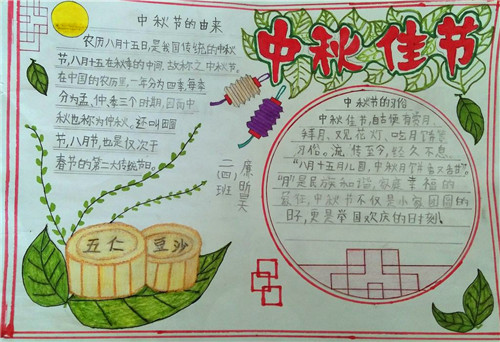 中秋节的由来
农历八月十五日,是我国传统的中秋
节,八月十五在秋季的中间,故称之中秋节。
在中国的农历里,一年分为四季,每季
分为孟、仲、季三个时期,因而中
秋也称为仲秋。还叫团圆
节,八月节,也是仅次于
春节的第二大传统节日。
中秋佳节
中秋节的习俗
中秋佳节,自古便有赏月、
拜月、观花灯、吃月饼等
习俗。流传至今,经久不息。
“八月十五月儿圆,中秋月饼香又香甜”
“月”是民族和谐,家庭幸福的
象征,中秋节不仅是小家团圆的
日子,更是举国欢庆的时刻。
二(四)班
廖昕昊
五仁
豆沙